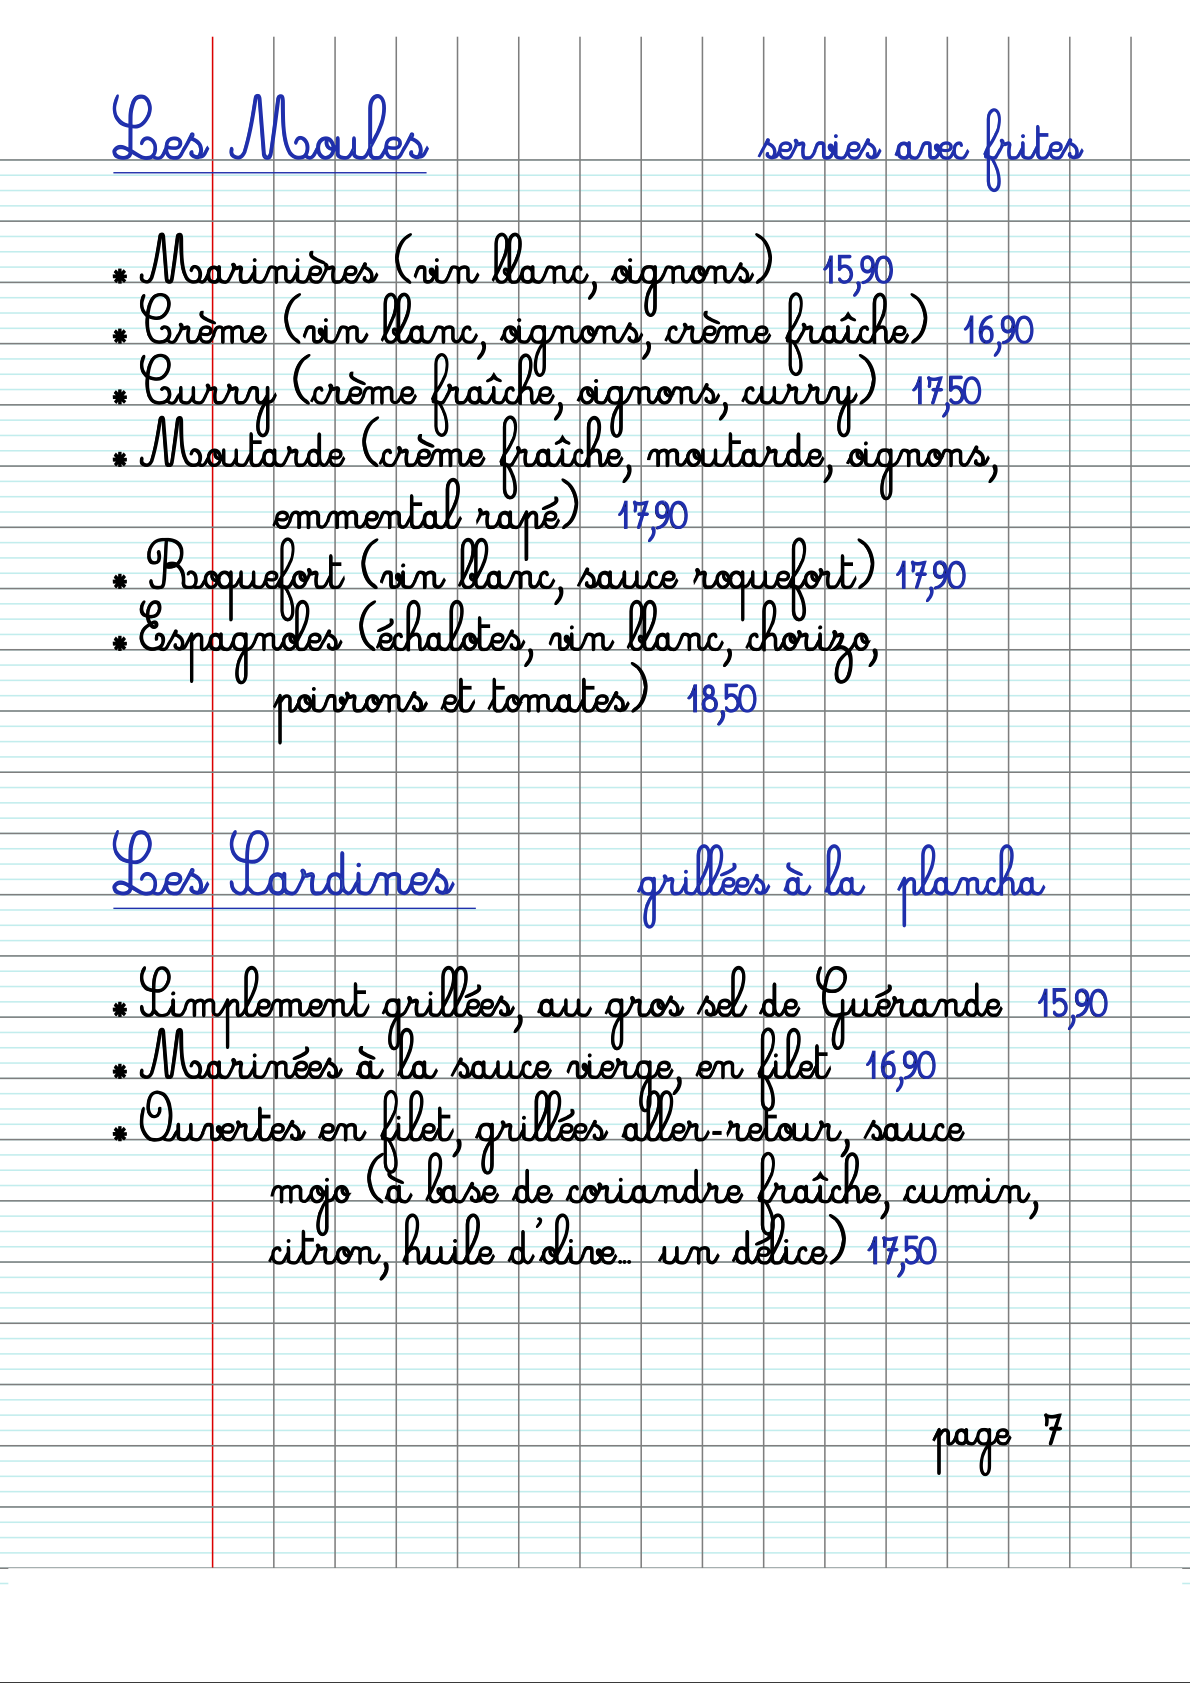 Les Moules servies avec frites
* Marinières (vin blanc, oignons) 15,90
* Crème (vin blanc, oignons, crème fraîche) 16,90
* Curry (crème fraîche, oignons, curry) 17,50
* Moutarde (crème fraîche, moutarde, oignons,
emmental rapé) 17,90
* Roquefort (vin blanc, sauce roquefort) 17,90
* Espagnoles (échalotes, vin blanc, chorizo,
poivrons et tomates) 18,50
Les Sardines grillées à la plancha
* Simplement grillées, au gros sel de Guérande 15,90
* Marinées à la sauce vierge, en filet 16,90
* Ouvertes en filet, grillées aller-retour, sauce
mojo (à base de coriandre fraîche, cumin,
citron, huile d'olive... un délice) 17,50
page 7